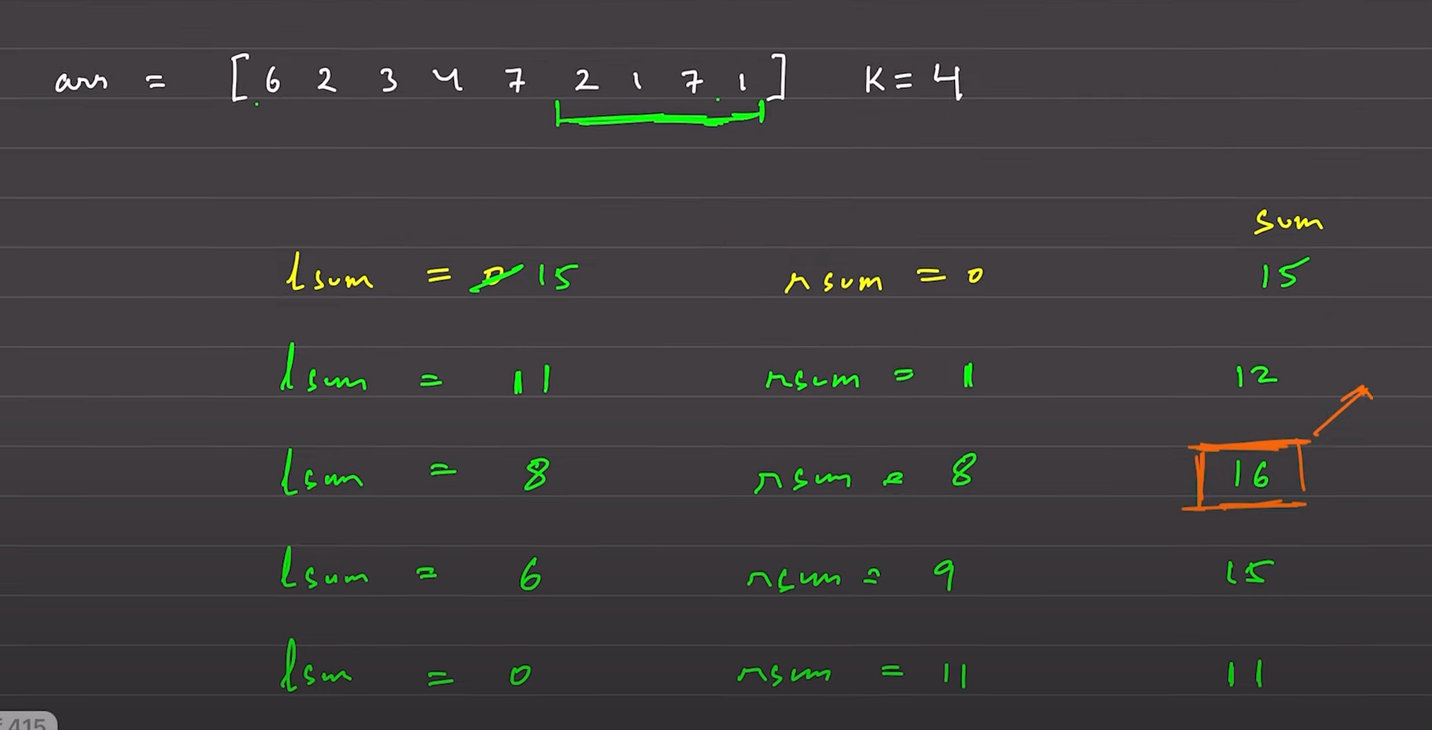 arr = [6 2 3 4 7 2 1 7 1] K=4
sum
lsum = 0 15 rsum = 0 15
lsum = 11 rsum = 1 12
lsum = 8 rsum = 8 16
lsum = 6 rsum = 9 15
lsum = 0 rsum = 11 11
415